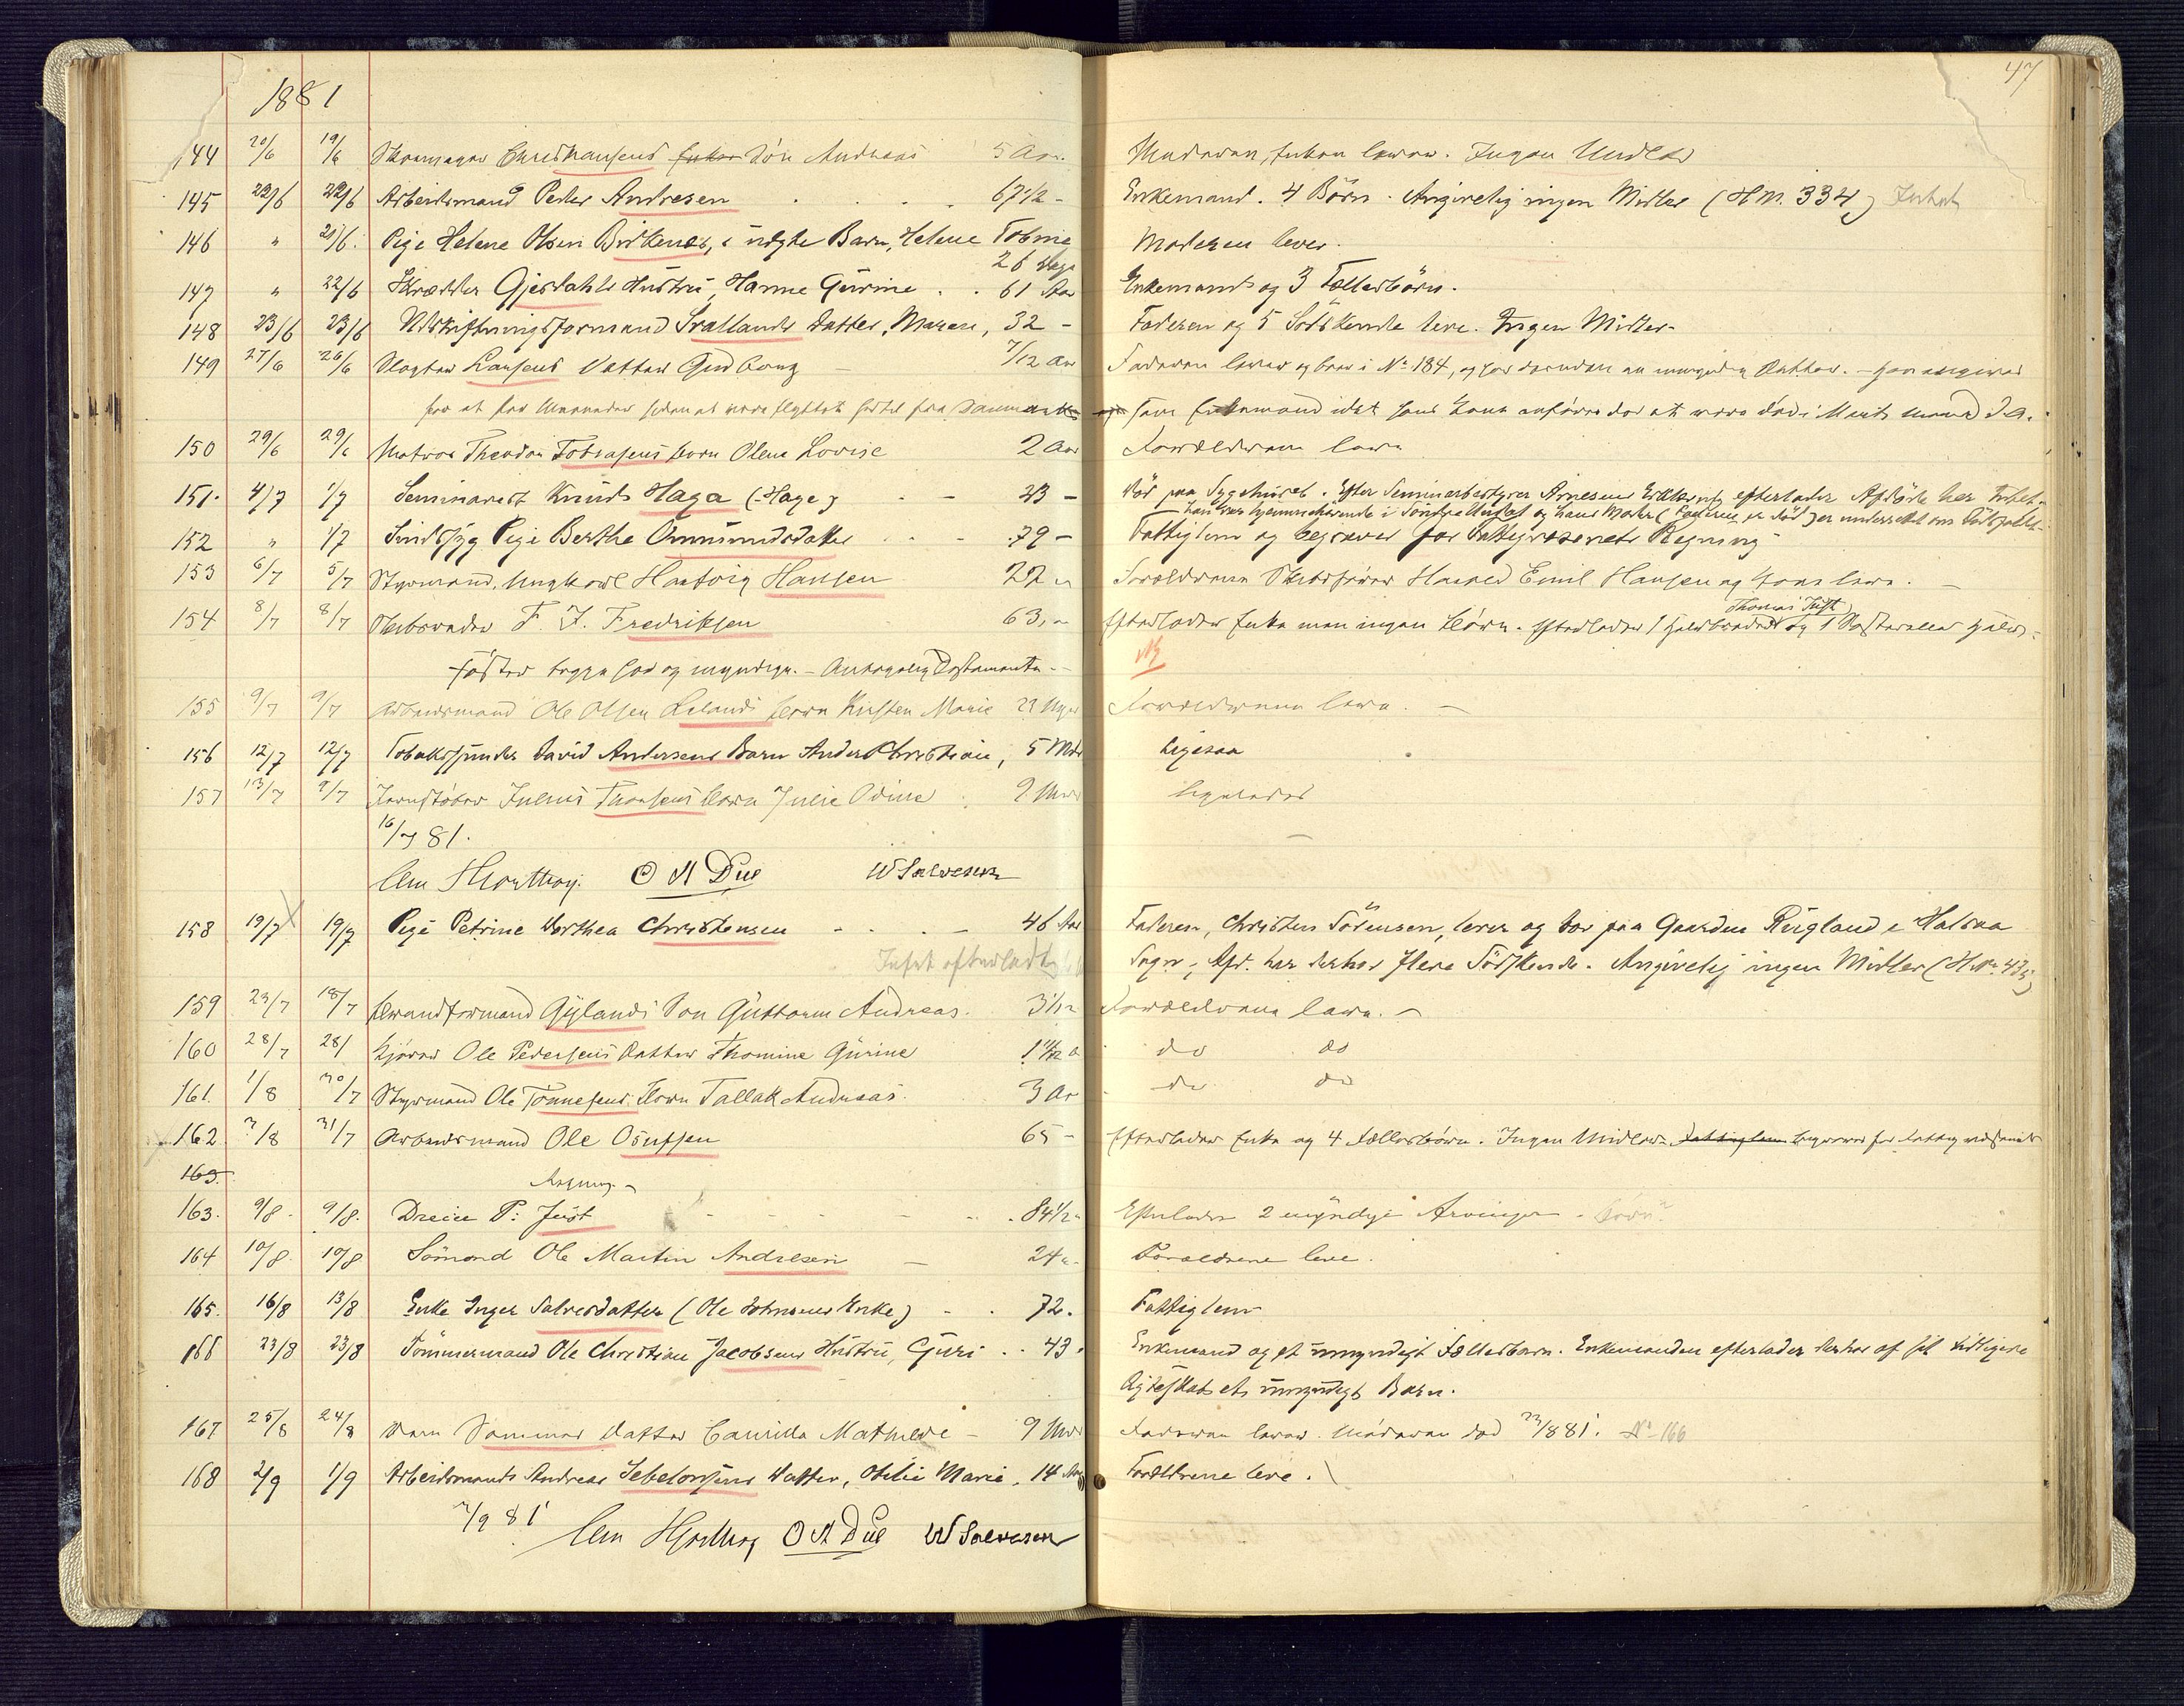 47
1881
144 20/6 19/6 Skomager Christiansens Søn Andreas 5 Aar. Moderen, Enken lever. Ingen Midler
145 22/6 22/6 Arbeidsmand Peder Andresen 67 1/2 - Enkemand. 4 Børn. Angivelig ingen Midler (H.M. 334)
146 " 21/6. Pige Helene Olsen Birkenes, s uægte Barn, Helene Tobine Moderen lever.
26 Dage
147 " 22/6 Skrædder Gjesdahls Hustru, Hanne Gurine . . 61 Aar Enkemand og 3 Fællesbørn.
148 23/6 23/6 Udskiftningsformand Svallands Datter, Maren, 32 - Faderen og 5 Sødskende leve. Ingen Midler.
149 27/6 26/6 Slagter Larsens Datter Gudborg 7/12 Aar Faderen lever og bor i No 184, og har desuden en umyndig Datter. - Han angives
for at have Maaneder siden at være flyttet hertil fra Danmark som Enkemand idet hans Kone anføres der at være død i Marts Maaned d.A.
150 29/6 29/6 Matros Theodor Tobiasens Barn Olene Lovise 2 Aar Forældrene leve
151. 4/7 1/7 Seminarist Knud Haga (Hage) - 23 - Død paa Sygehuset. Efter Seminarbestyrer Arnesens Erklæring efterlader Afdøde her Intet.
Han var hjemmehørende i og hans Moder (Faderen er død) er underrettet om Dødsfaldet.
152 " 1/7 Sindssyg Pige Berthe Ommundsdatter 79 - Fattiglem og begraves for Fattigvæsenets Regning
153 6/7 5/7 Styrmand, Ungkarl Hartvig Hansen 22 " Forældrene Skibsfører Emil Hansen og Hone leve. -
154 8/7 8/7 Skibsreder F. J. Fredriksen 63 " Efterlader Enke men ingen Børn. Efterlader 1 Halvbroder Thomas Fust og 1 Søster eller Halv-
søster begge her og myndige. - Antagelig Testamente. -
155 9/7 9/7 Arbeidsmand Ole Olsen Lølands Barn Kirsten Marie 23 Uger Forældrene leve. -
156 12/7 12/7 Tobakspinder David Andersens Barn Anders Christian, 5 Mdr Ligesaa
157 13/7 9/7 Jernstøber Julius Thorsens Barn Julie Odine 9 Mdr ligeledes
16/7 81.
Chr Hjorthøy. O A Due W Salvesen
158 19/7 19/7 Pige Petrine Dorthea Christensen - . . - 46 Aar Faderen, Christen Sørensen, lever og bor paa Gaarden Rugland i Halsaa
Intet efterladt Sogn, Afd. har derhos flere Sødskende. Angivelig ingen Midler (H.No. 435)
159 23/7 18/7 Brandformand Gylands Søn Guttorm Andreas. 3 1/12 Forældrene leve. -
160 28/7 28/ Kjører Ole Pedersens Datter Thomine Gurine 1 11/12 a do do
161. 1/8 30/7 Styrmand Ole Tønnesens Barn Tallak Andreas. 3 Ar do do
162. 3/8 31/7 Arbeidsmand Ole Osufsen 65 - Efterlader Enke og 4 Fællesbørn. Ingen Midler. Fattiglem begraves for Fattigvæsenets
163. Regning. -
163. 9/8. 9/8. Dreier P. Just 84 1/2 " Efterlader 2 myndige Arvinger - Børn?
164 10/8. 10/8 Sømand Ole Martin Andresen - 24 ". Forældrene leve.
165. 16/8 13/8 Enke Inger Salvesdatter (Ole Johnsens Enke) - . 72. Fattiglem
166 23/8 23/8 Tømmermand Ole Christian Jacobsens Hustru, Guri . . 43. Enkemand og et umyndigt Fællesbarn. Enkemanden efterlader derhos af sit tidligere
Ægteskab et umyndigt Barn.
167 25/8 24/8 Sammes Datter Camilla Mathilde - 9 Mdr Faderen lever. Moderen død 23/8 81. No 166
168 2/9 1/9 Arbeidsmand Andreas Sebelonsens Datter, Otilie Marie, 14 Aar Forældrene leve.
2/9 81
Chr Hjorthøy O A Due W Salvesen